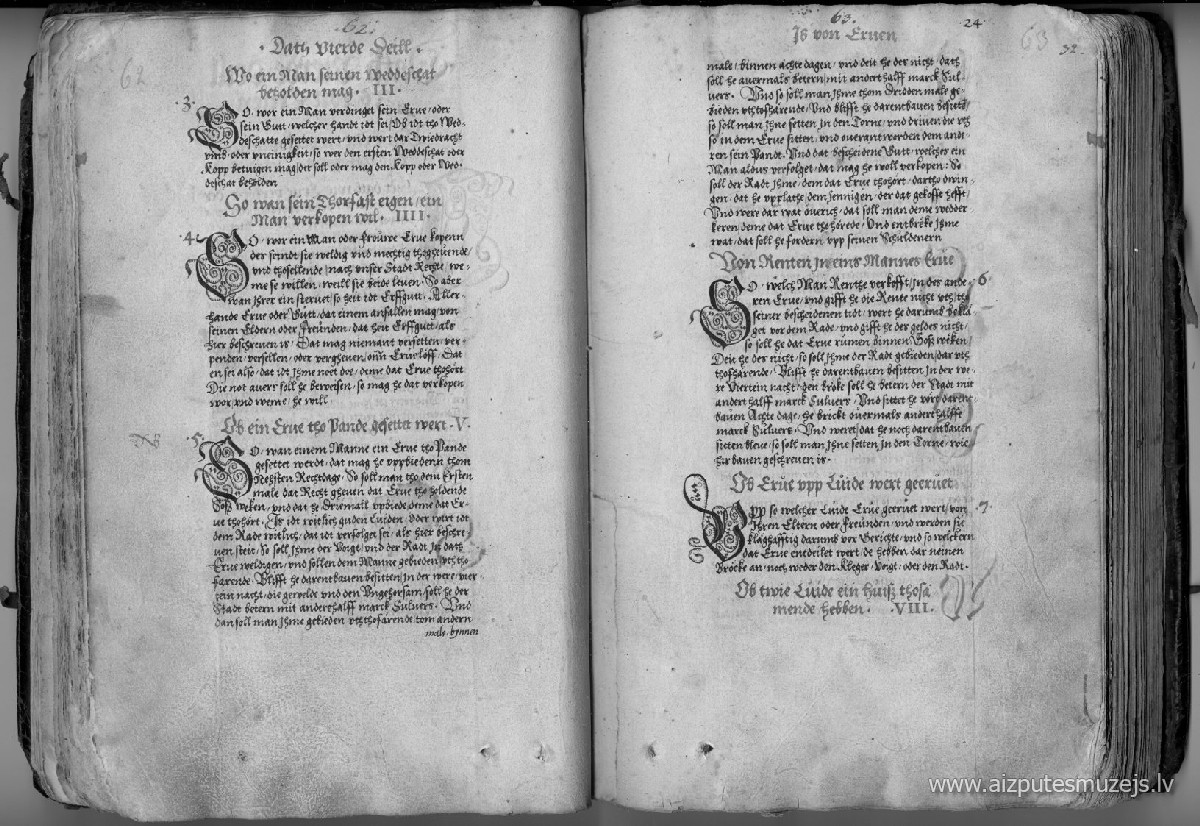 62.
· Dath Vierde Deill ·
62
Wo ein Man seinen Weddeschat
beholden mag · III ·
· 3 ·
SO · wor ein Man verdinget sein Erue / oder
sein Gutt / welcher handt idt sei / Ob idt tho Wed-
deschatte gesettet wert / vnd wert dar Twiedracht
vmb / oder vneinigkeit / so wer den ersten Weddeschat oder
Kopp betuigen mag / der soll oder mag den Kopp oder Wed-
deschat beholden
So wan sein Thorfast eigen / ein
Man verkopen wil · IIII ·
4 ·
SO · wor ein Man oder frouwe Erue kopenn
der seindt sie weldig vnd mechtig thogheuende /
vnd thosellende / nach vnser Stadt Rechte / we-
me se willen / weill sie beide leuen · So aber
wan Ihrer ein steruet so heit idt Erffgutt · Aller-
hande Erue oder Gutt / dat einem anfallen mag von
seinen Eldern oder freunden / dat heit Erffgutt / als
hier beschreuen is · Dat mag niemant versetten / ver-
penden / versellen / oder vergheuen / ohn Erue löff · Dat
en sei also / dat idt Ihme noet doe / deme dat Erue thohört
Die not auers soll he beweisen / so mag he dat verkopen
wor / vnd weme / he will
Ob ein Erue tho Pande gesettet wert · V ·
· 5 ·
SO · wan einem Manne ein Erue tho Pande
gesettet werdt / dat mag he vppbiedenn thom
Nehsten Rechtdage · So soll man tho dem Ersten
male dat Richt gheuen dat Erue tho holdende
Soß weken / vnd dat he driemall vpbiede deme dat Er-
ue thohört · Is idt witlich guden Luiden · Oder wert idt
dem Rade witlich / dat idt verfolget sei / als hier beschre-
uen steit · So soll Ihme der Voigt / vnd der Radt In dath
Erue weldigen / vnd sollen dem Manne gebieden vththo-
farende · Blifft he darentbauen besitten / In der were / vier-
tein nacht / die gewelde vnd den Vngehorsam / soll he der
Stadt betern mit anderehalff marck Suluers · Vnd
dan soll man Ihme gebieden vththofarende / tom andern
male · bynnen
63.
24
Is von Eruen
63
32
male / binnen achte dagen / vnd deit he des nicht / dath
soll he auermals betern / mit anderthalff marck Sul-
uers · Vnd so soll man Ihme thom dridden male ge-
bieden vthtofharende / Vnd blifft he darentbauen besitten /
so soll man Ihne setten / In den Torne / vnd driuen die vth
so in dem Erue sitten / vnd ouerantworden dem and-
ren sein Pandt · Vnd dat bescheidene Gutt / welches ein
Man aldus verfolget / dat mag he woll verkopen · So
soll der Radt Ihme / dem dat Erue thohört / dartho dwin-
gen / dat he vpplathe / dem Jennigen / der dat gekofft hefft /
Vnd were dar wat ouerich / dat soll man deme wedder
keren deme dat Erue tho hörede · Vnd entbröke Ihme
wat / dat soll he fordern vpp seinen Schuldenern
Von Renten In eins Mannes Erue
· 6 ·
SO · welch Man Renthe verkofft / In des ande-
ren Erue / vnd gifft he die Rente nicht vth / tho
seiner bescheidenen tidt / wert he darumb bekla-
get vor dem Rade / vnd gifft he der geldes nicht /
so soll he dat Erue rümen binnen Soß weken /
Deit he des nicht / so soll Ihme der Radt gebieden / dar vth
thofharende · Bliffe he darentbauen besitten In der we-
re Viertein nacht / den bröke soll he betern der Stadt mit
anderthalff marck Suluers · Vnd sittet he vort darent-
bauen Achte dage / he brickt ouermals anderthalffe
marck Suluers · Vnd weret / dat he noch darentbauen
sitten bleue / so soll man Ihne setten / In den Torne / wie
hir bauen geschreuen is ·
Ob Erue vpp Luide wert geeruet
· 7 ·
VPP so welcher Luidt Erue geeruet wert / von
Ihren Eltern oder Freunden / vnd werden sie
klaghafftig darumb vor Gerichte / vnd so welckern
dat Erue entdeilet wert / de hebben dar neinen
Bröcke an / noch weder den Kleger · Voigt · oder den Radt ·
Ob twie Luide ein Huiß thosa-
mende hebben · · VIII ·
www.aizputesmuzejs.lv